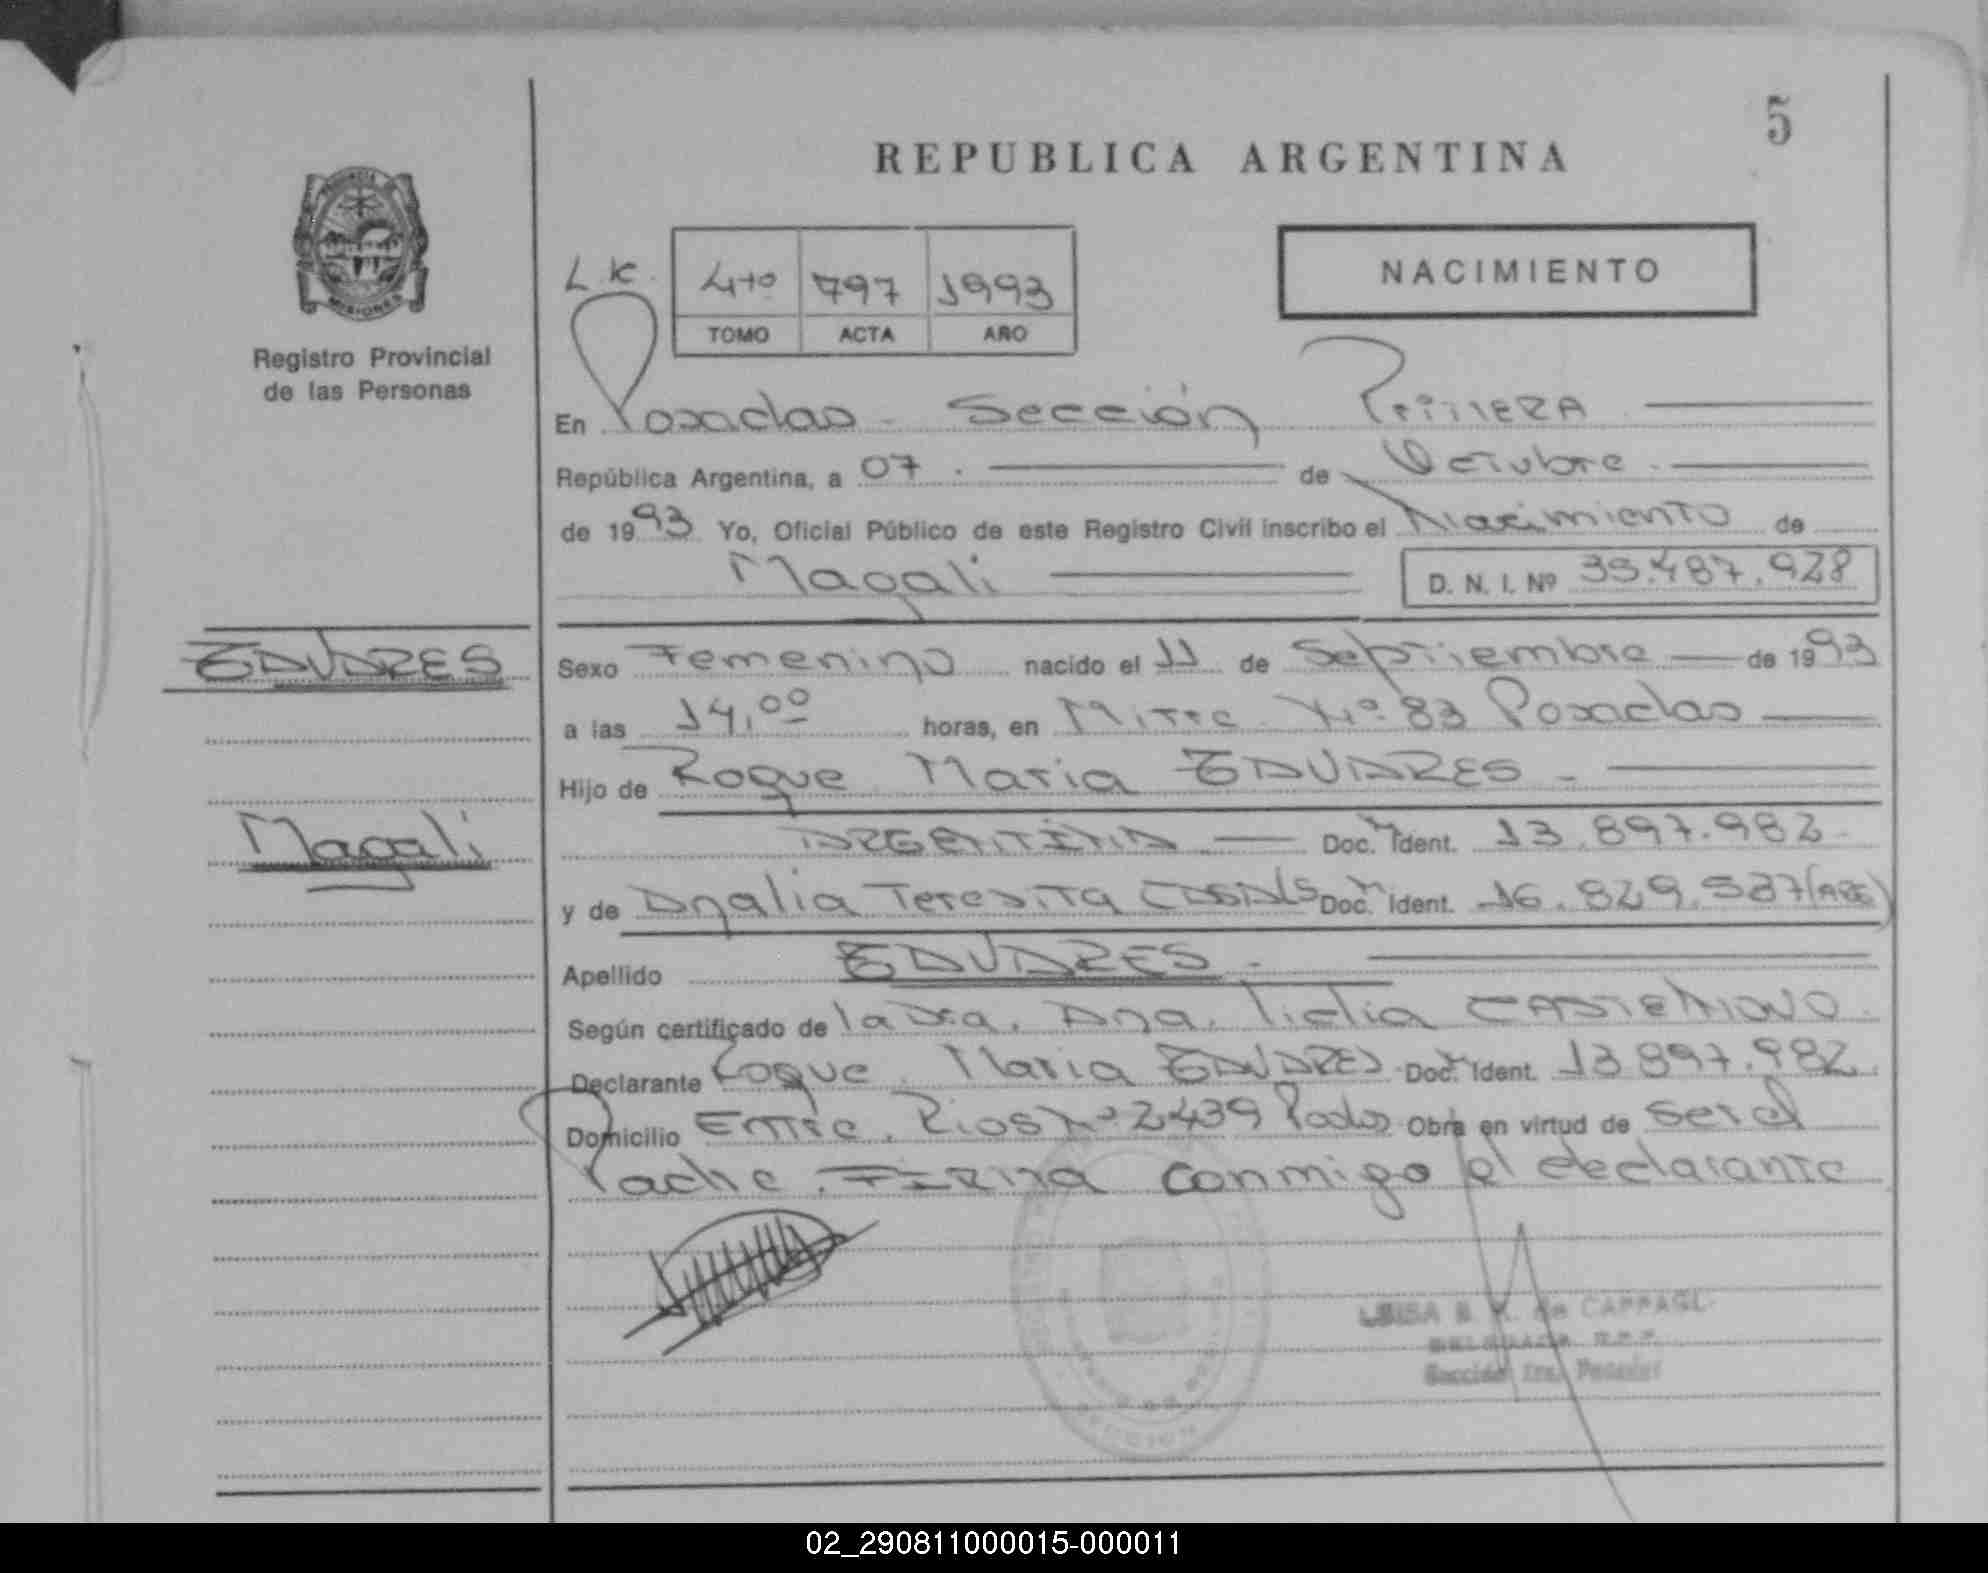 5
REPUBLICA ARGENTINA
PROVINCIA
MISIONES
Registro Provincial
de las Personas
L.K.
4to 797 1993
TOMO ACTA AÑO
NACIMIENTO
En Posadas - Sección Primera
República Argentina, a 07. de Octubre.
de 1993 Yo, Oficial Público de este Registro Civil inscribo el Nacimiento de
Magali D. N. I. Nº 35.487.928
EDVARES
Sexo Femenino nacido el 11 de Septiembre de 1993
a las 14,00 horas, en Mitre Nº 83 Posadas
Hijo de Roque Maria EDVARES
Magali
ARGENTINA Doc. Ident. 13.897.982
y de Analia Teresita CASALS Doc. Ident. 16.829.587 (ARG)
Apellido EDVARES
Según certificado de la Dra. Ana. Lidia CASTELNOVO.
Declarante Roque Maria EDVARES Doc. Ident. 13.897.982
Domicilio Entre Rios Nº 2439 Podas Obra en virtud de ser el
Padre. FIRMA conmigo el declarante
de CAPPAGLI
Sección 1ra. Posadas
02_290811000015-000011